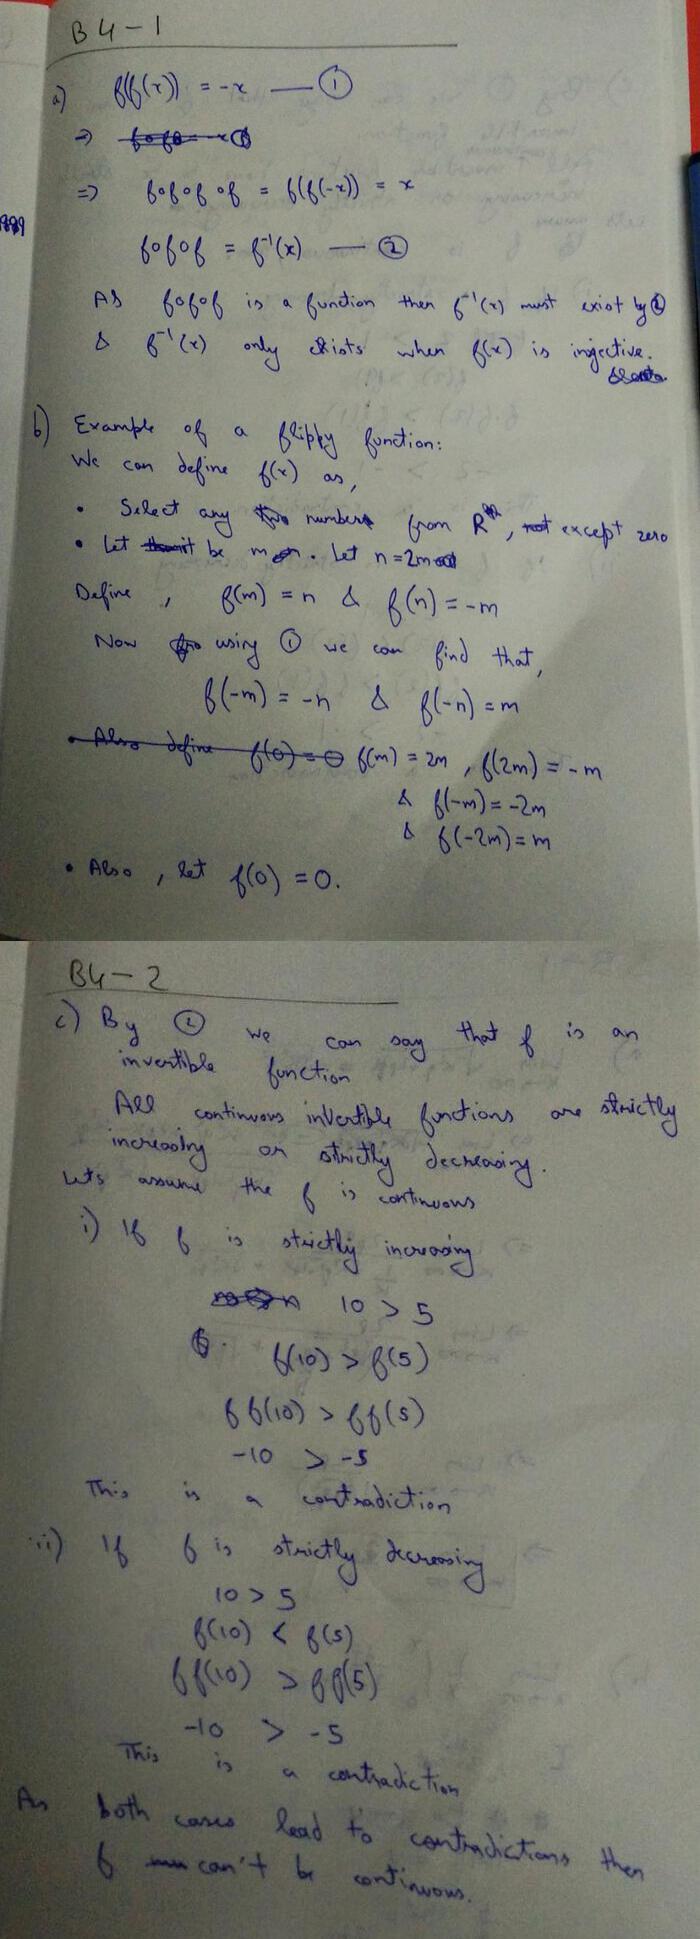 B4-1
a) f(f(x)) = -x —— ①
⇒
⇒ f∘f∘f∘f = f(f(-x)) = x
f∘f∘f = f⁻¹(x) —— ②
As f∘f∘f is a function then f⁻¹(x) must exist by ②
& f⁻¹(x) only exists when f(x) is injective.
b) Example of a flippy function:
We can define f(x) as,
• Select any number from R, except zero
• Let it be m. Let n=2m
Define, f(m) = n & f(n) = -m
Now using ① we can find that,
f(-m) = -n & f(-n) = m
• Also define f(0) = 0 f(m) = 2m, f(2m) = -m
& f(-m) = -2m
& f(-2m) = m
• Also, let f(0) = 0.
B4-2
c) By ② we can say that f is an
invertible function
All continuous invertible functions are strictly
increasing or strictly decreasing.
Lets assume the f is continuous
i) If f is strictly increasing
10 > 5
f(10) > f(5)
f f(10) > f f(5)
-10 > -5
This is a contradiction
ii) If f is strictly decreasing
10 > 5
f(10) < f(5)
f f(10) > f f(5)
-10 > -5
This is a contradiction
As both cases lead to contradictions then
f can't be continuous.